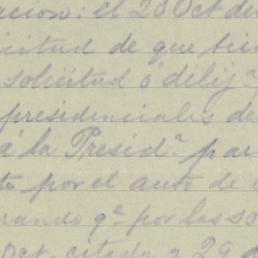 acion: el 28 Oct de
icitud de que bien
solicitud ó dilijª
presidenciales de
á la Presidª par
to por el auto de
rando qe por las so
Oct. citado y 29 d